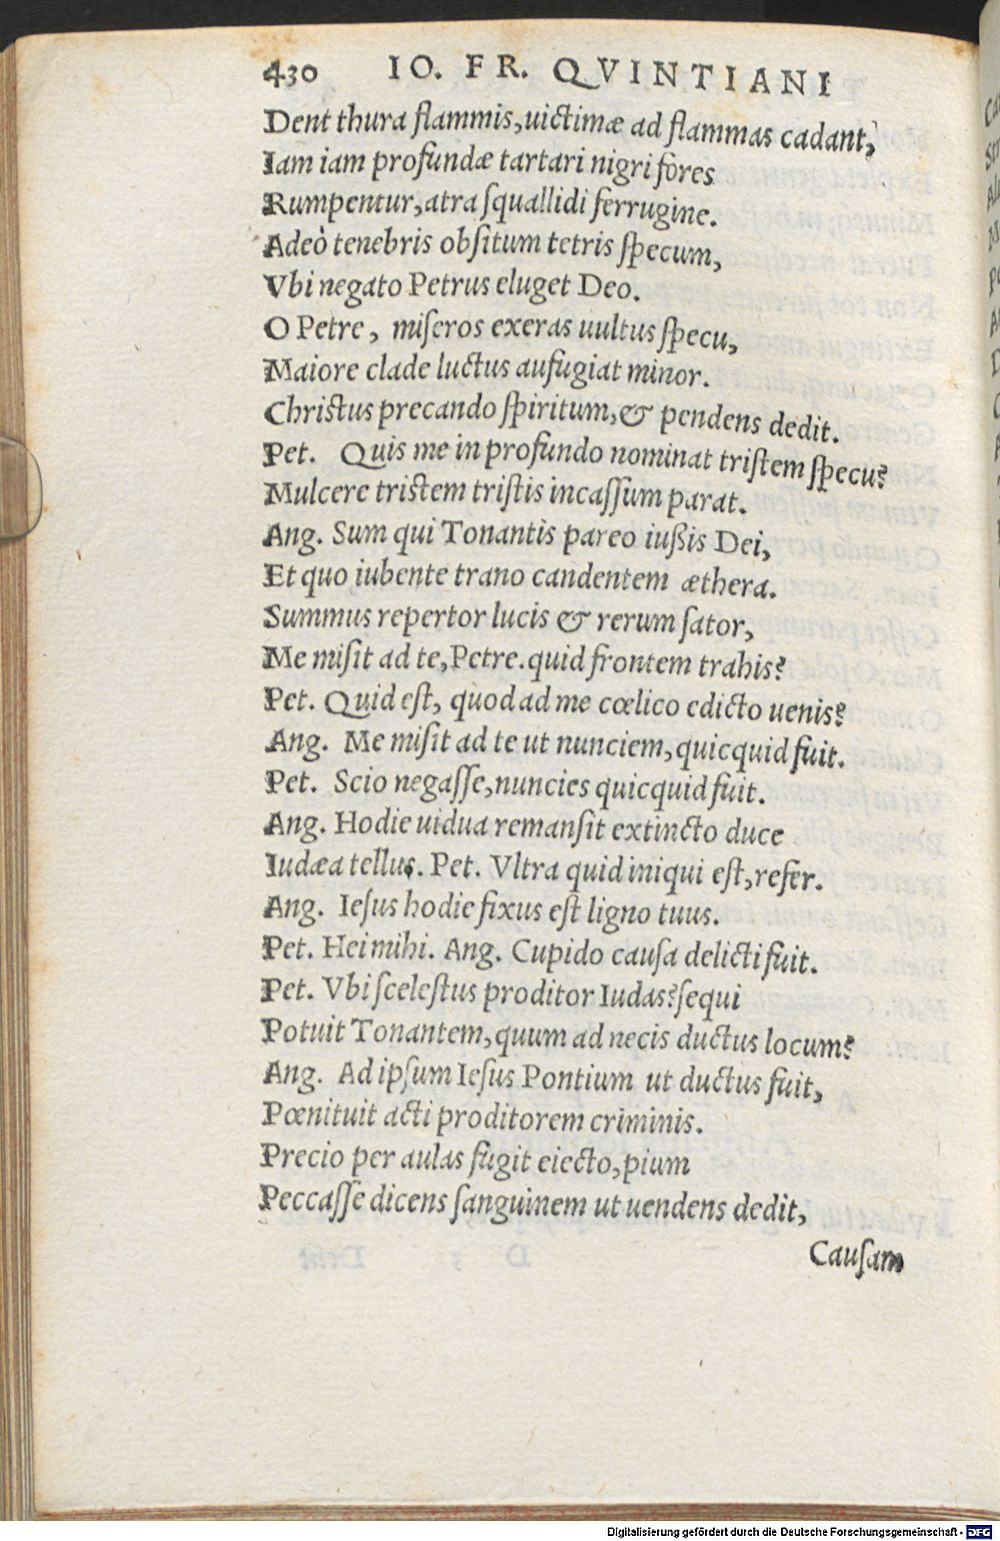 430 IO. FR. QVINTIANI
Dent thura flammis, uictimæ ad flammas cadant,
Iam iam profundæ tartari nigri fores
Rumpentur, atra squallidi ferrugine.
Adeò tenebris obsitum tetris specum,
Vbi negato Petrus eluget Deo.
O Petre, miseros exeras uultus specu,
Maiore clade luctus aufugiat minor.
Christus precando spiritum, & pendens dedit.
Pet. Quis me in profundo nominat tristem specu?
Mulcere tristem tristis incassum parat.
Ang. Sum qui Tonantis pareo iußis Dei,
Et quo iubente trano candentem æthera.
Summus repertor lucis & rerum sator,
Me misit ad te, Petre. quid frontem trahis?
Pet. Quid est, quod ad me cœlico edicto uenis?
Ang. Me misit ad te ut nunciem, quicquid fuit.
Pet. Scio negasse, nuncies quicquid fuit.
Ang. Hodie uidua remansit extincto duce
Iudæa tellus. Pet. Vltra quid iniqui est, refer.
Ang. Iesus hodie fixus est ligno tuus.
Pet. Hei mihi. Ang. Cupido causa delicti fuit.
Pet. Vbi scelestus proditor Iudas? sequi
Potuit Tonantem, quum ad necis ductus locum?
Ang. Ad ipsum Iesus Pontium ut ductus fuit,
Pœnituit acti proditorem criminis.
Precio per aulas fugit eiecto, pium
Peccasse dicens sanguinem ut uendens dedit,
Causam
Digitalisierung gefördert durch die Deutsche Forschungsgemeinschaft - DFG